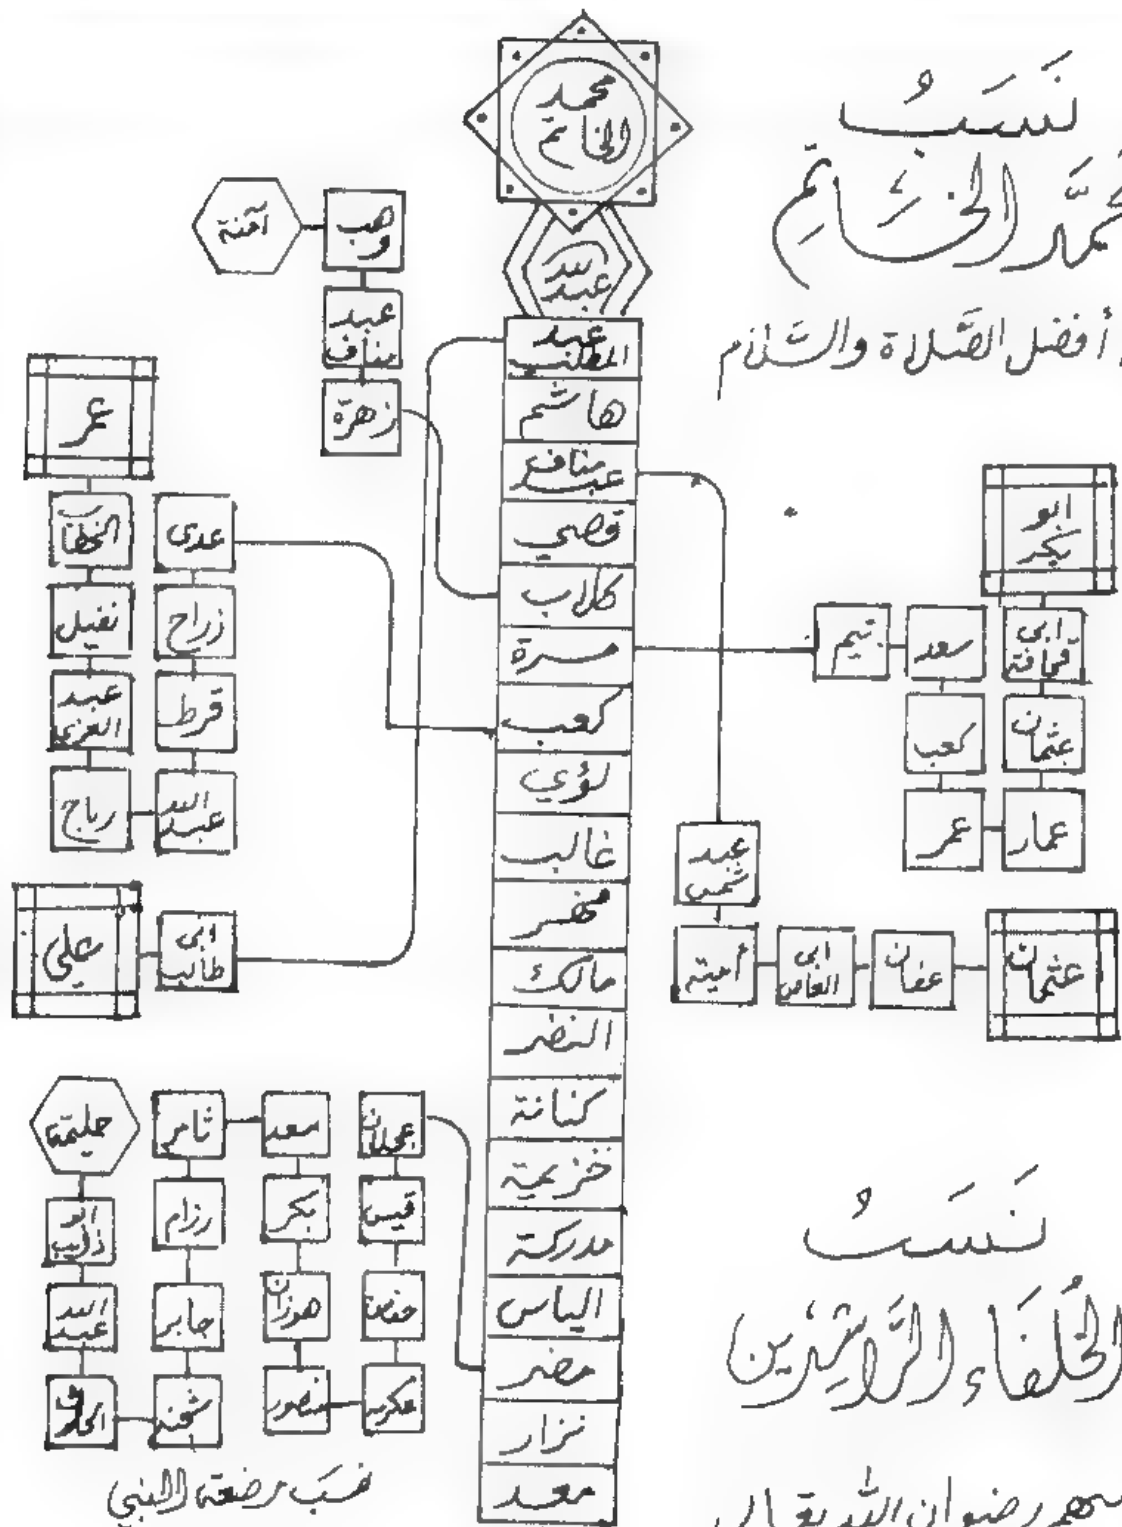 نَسَبُ
مُحَمَّد الخَاتِم
أفضل الصَّلاة والسَّلام
محمد
الخاتم
عبد الله
عبد
المطلب
هاشم
عبد مناف
قصي
كلاب
مرة
كعب
لؤي
غالب
مالك
النضر
كنانة
خزيمة
مدركة
الياس
مضر
نزار
معد
آمنة
وهب
عبد
مناف
زهرة
عمر
الخطاب
نفيل
عبد
العزى
رباح
عبد الله
قرط
زراح
عدى
علي
ابى
طالب
ابو
بكر
ابى
قحافة
عثمان
عمار
عمر
كعب
سعد
تيم
عبد
شمس
أمية
ابى
العاص
عفان
عثمان
حليمة
ابو
ذؤيب
عبد الله
الحارث
شجنه
جابر
رزام
سعد
بكر
هوزان
منصور
عكرمه
قيس
نسب مرضعة النبي
نَسَبُ
الخُلَفَاء الرَّاشِدِين
رضوان الله تعالى